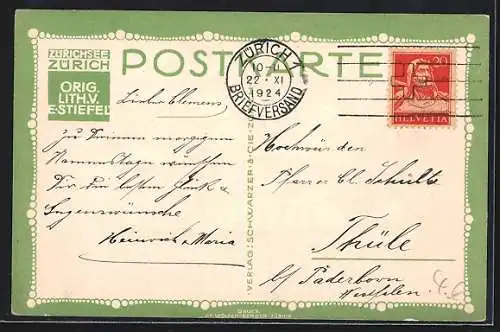 ZÜRICHSEE
ZÜRICH
ORIG.
LITH. V.
E. STIEFEL
POSTKARTE
ZÜRICH 1
10-11
22·XI
1924
BRIEFVERSAND
20
HELVETIA
Lieber Clemens,
Zu Deinem morgigen
Namenstage wünschen
Dir die besten Glück &
Segenswünsche
Heinrich & Maria
VERLAG: SCHWARZER & CIE. Z
Hochwürden
Pfarrer Cl. Schulte
Thüle
b/ Paderborn
Westfalen.
DRUCK